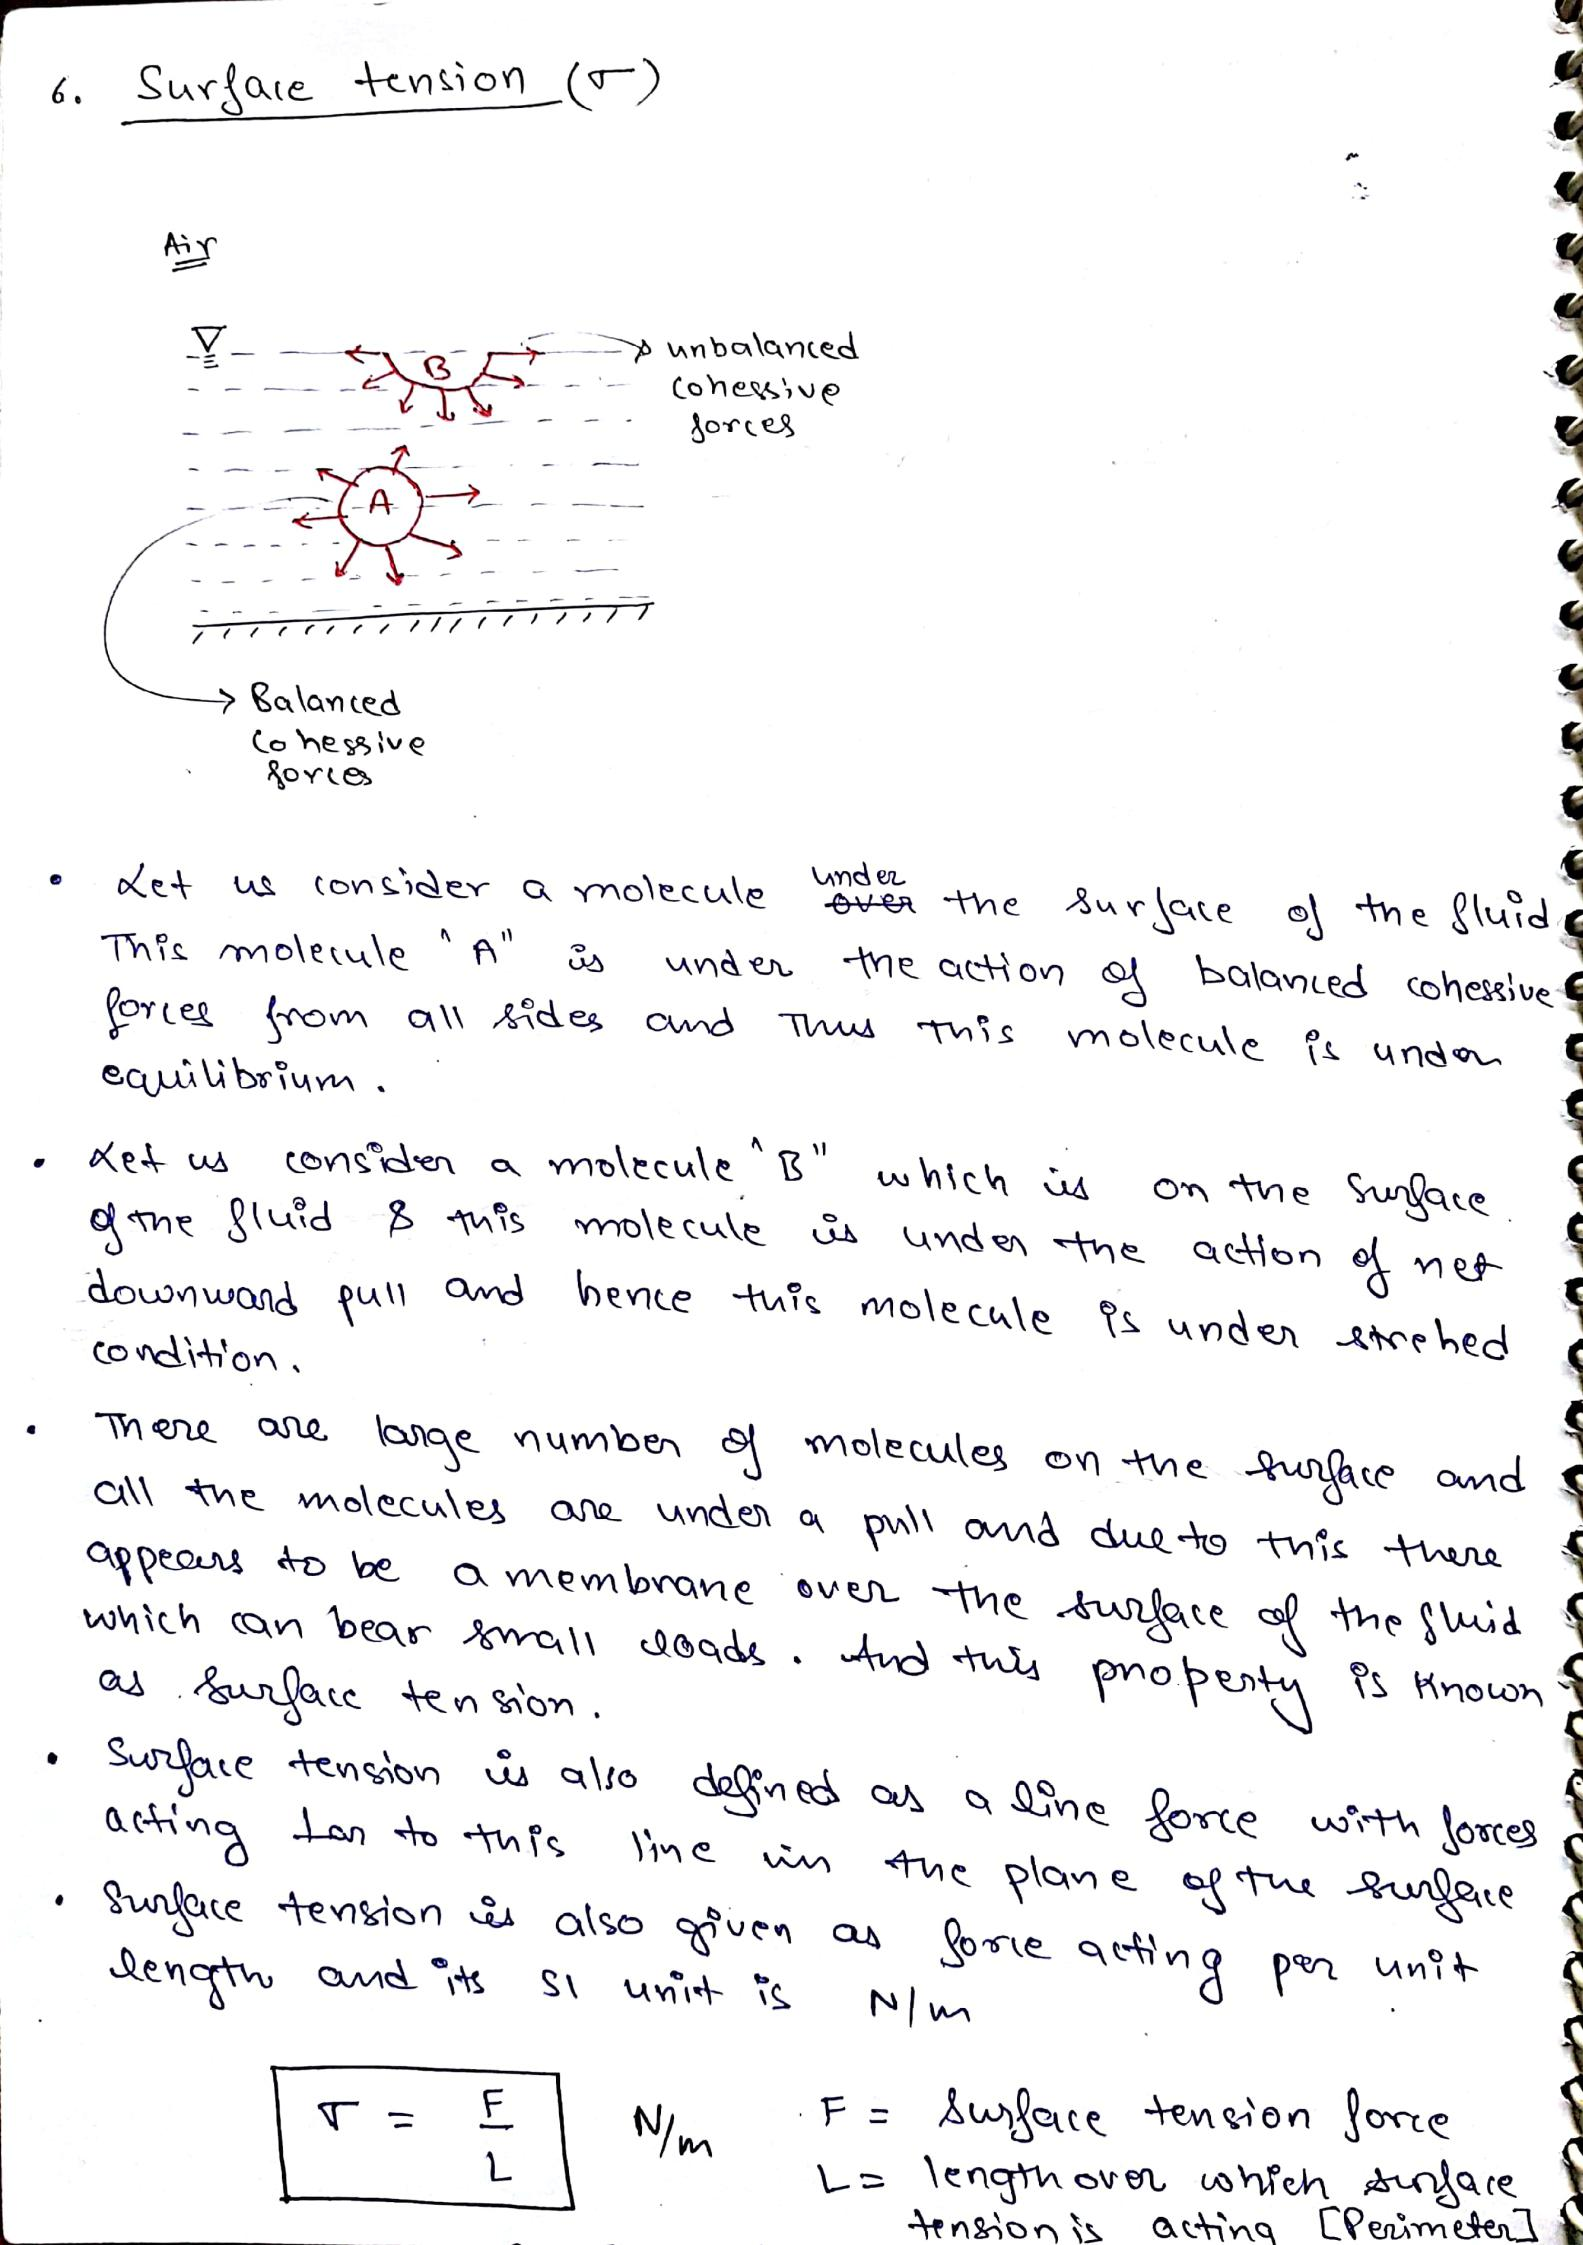 6. Surface tension (σ)
Air
B
unbalanced
cohessive
forces
A
Balanced
cohessive
forces
• Let us consider a molecule under ~~over~~ the surface of the fluid
This molecule "A" is under the action of balanced cohessive
forces from all sides and Thus this molecule is under
equilibrium.
• Let us consider a molecule "B" which is on the surface
of the fluid & this molecule is under the action of net
downward pull and hence this molecule is under strehed
condition.
• There are large number of molecules on the surface and
all the molecules are under a pull and due to this there
appears to be a membrane over the surface of the fluid
which can bear small loads. And this property is known
as surface tension.
• Surface tension is also defined as a line force with forces
acting ⊥ar to this line in the plane of the surface
• Surface tension is also given as force acting per unit
length and its SI unit is N/m
σ = F/L N/m
F = Surface tension force
L = length over which surface
tension is acting [Perimeter]